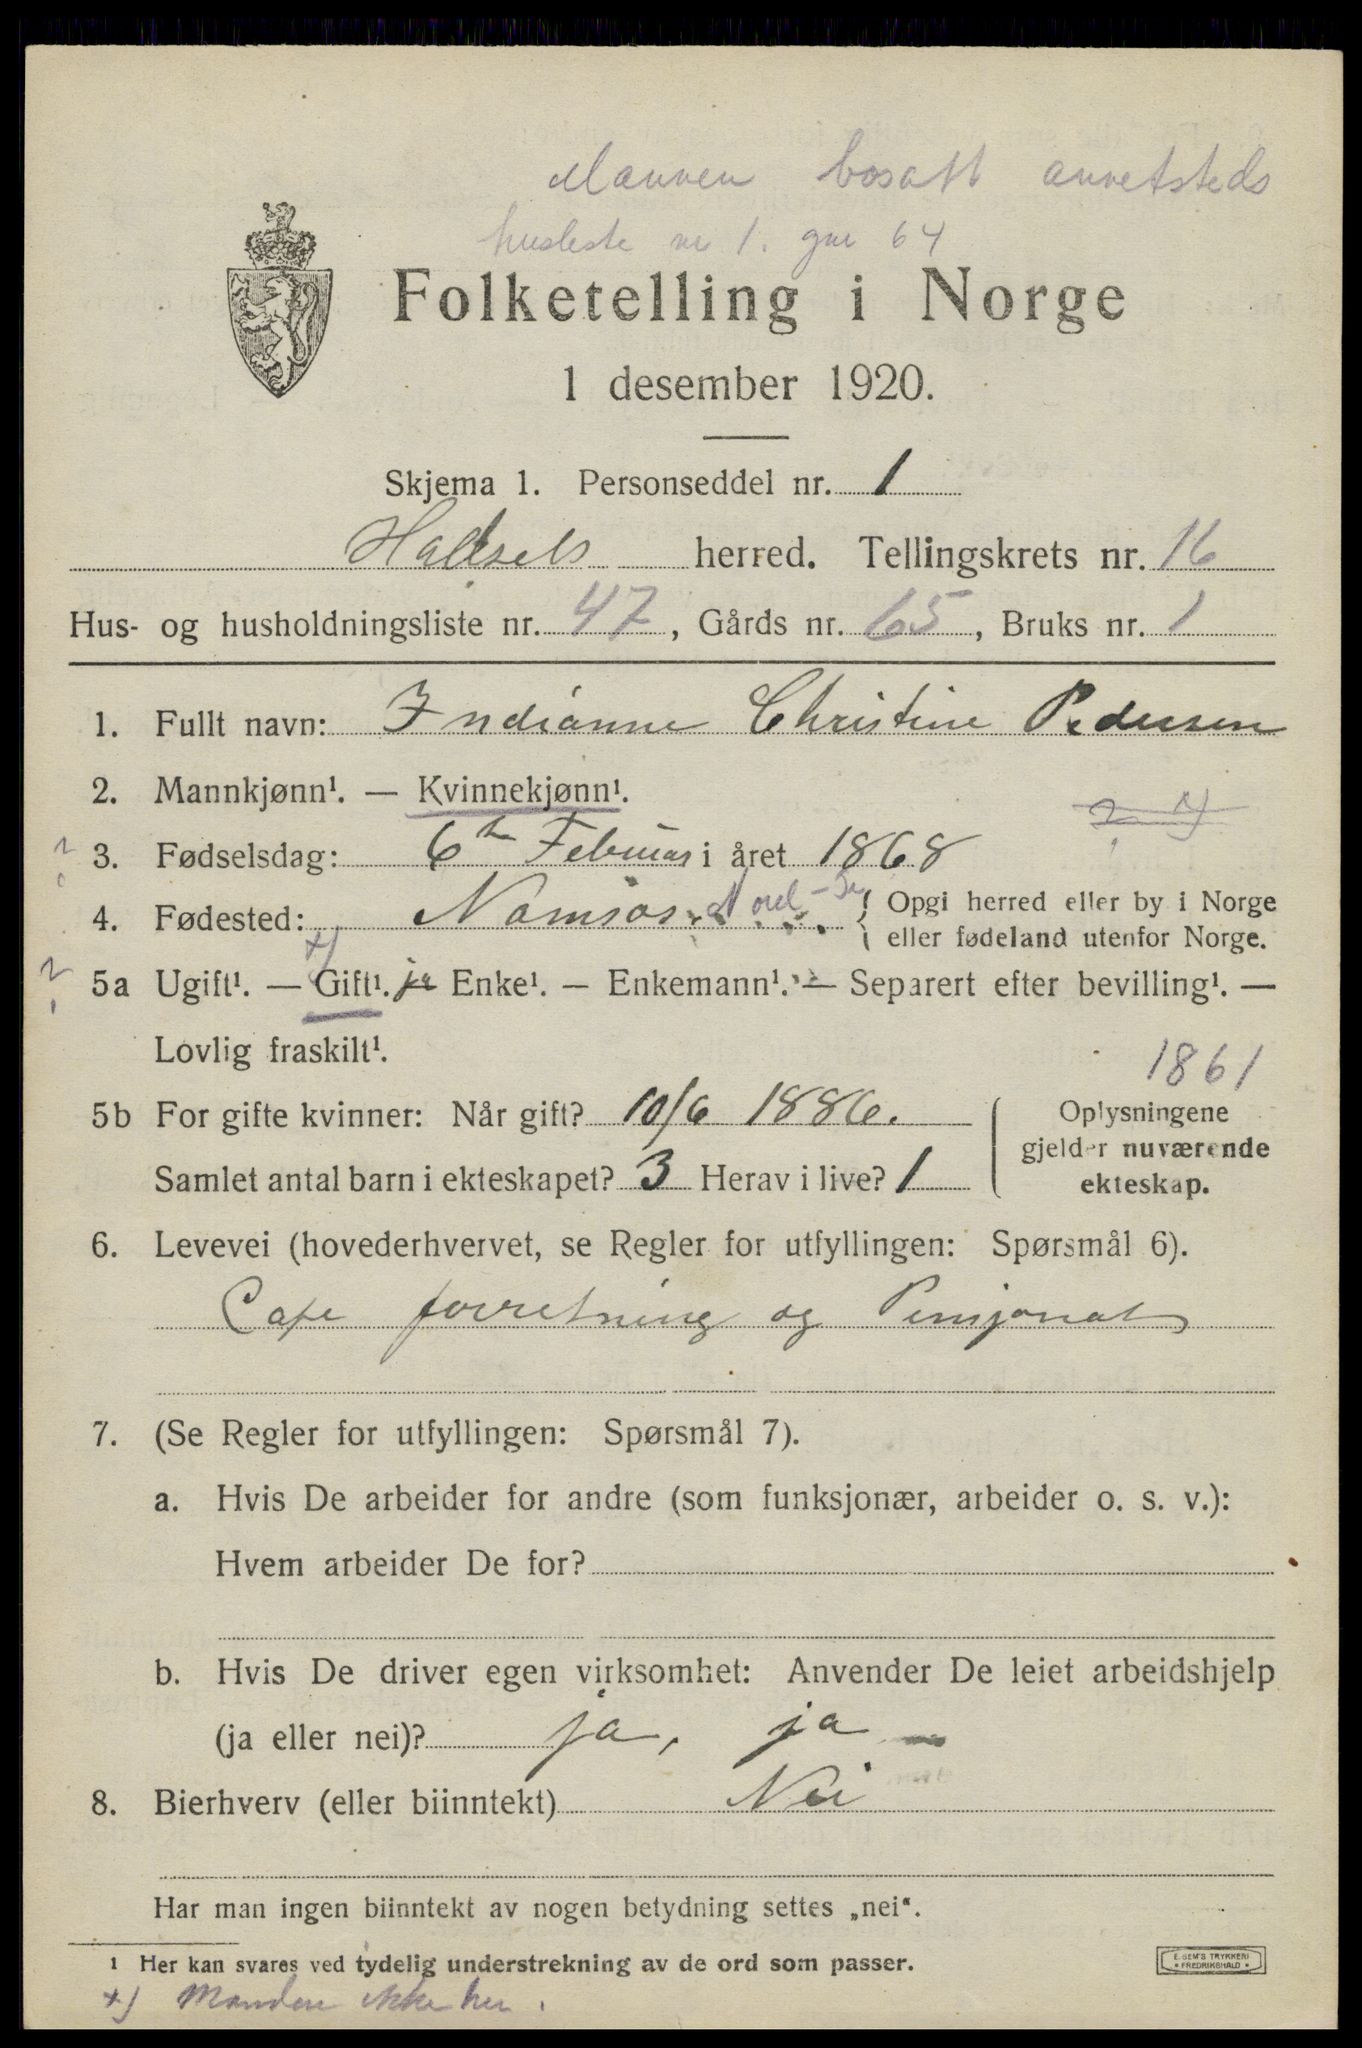 Mannen bosatt annetsteds
husliste nr 1. gnr 64
Folketelling i Norge
1 desember 1920.
Skjema 1. Personseddel nr. 1
Hadsels herred. Tellingskrets nr. 16
Hus- og husholdningsliste nr. 47, Gårds nr. 65, Bruks nr. 1
1. Fullt navn: Indianne Christine Pedersen
2. Mannkjønn¹. — Kvinnekjønn¹.
? 3. Fødselsdag: 6 Februar i året 1868
4. Fødested: Namsos. Nord-Tr { Opgi herred eller by i Norge
eller fødeland utenfor Norge.
+)
? 5a Ugift¹. — Gift¹. ja Enke¹. — Enkemann¹. — Separert efter bevilling¹. —
Lovlig fraskilt¹.
1861
5b For gifte kvinner: Når gift? 10/6 1886. Oplysningene
gjelder nuværende
Samlet antal barn i ekteskapet? 3 Herav i live? 1 ekteskap.
6. Levevei (hovederhvervet, se Regler for utfyllingen: Spørsmål 6).
Cafe forretning og Pensjonat
7. (Se Regler for utfyllingen: Spørsmål 7).
a. Hvis De arbeider for andre (som funksjonær, arbeider o. s. v.):
Hvem arbeider De for?
b. Hvis De driver egen virksomhet: Anvender De leiet arbeidshjelp
(ja eller nei)? ja, ja —
8. Bierhverv (eller biinntekt) Nei
Har man ingen biinntekt av nogen betydning settes „nei“.
¹ Her kan svares ved tydelig understrekning av de ord som passer.
E. SEM'S TRYKKERI
• FREDRIKSHALD •
+) Manden ikke her.